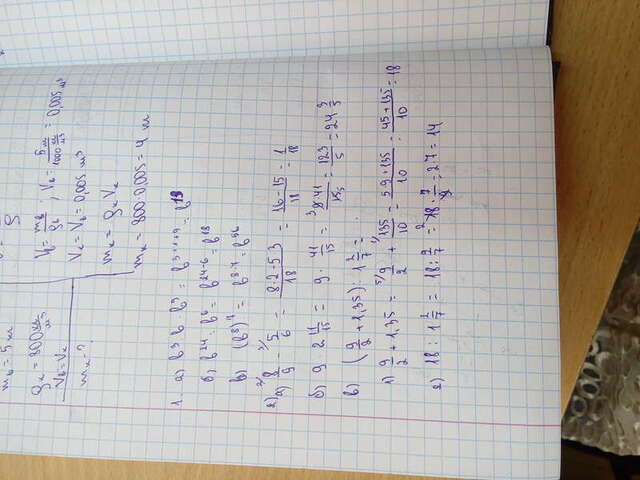 m_в = 5 кг
ρ_к = 800 кг/м³
V_в = V_к
m_к - ?
ρ
V_в = m_в/ρ_в ; V_в = 5 кг / 1000 кг/м³ = 0,005 м³
V_к = V_в = 0,005 м³
m_к = ρ_к V_к
m_к = 800 · 0,005 = 4 кг
1. а) b³ b · b⁹ = b³⁺¹⁺⁹ = b¹³
б) b²⁴ : b⁶ = b²⁴⁻⁶ = b¹⁸
в) (b⁸)⁷ = b⁸·⁷ = b⁵⁶
2. а) ²⁾8/9 - ³⁾5/6 = 8·2-5·3/18 = 16-15/18 = 1/18
б) 9 · 2 11/15 = 9 · 41/15 = ³9·41/15₅ = 123/5 = 24 3/5
в) (9/2 + 1,35) : 1 2/7 =
1) 9/2 + 1,35 = ⁵⁾9/2 + ¹⁾135/10 = 5·9+135/10 = 45+135/10 = 18
2) 18 : 1 2/7 = 18 : 9/7 = ²18 · 7/9 = 2·7 = 14